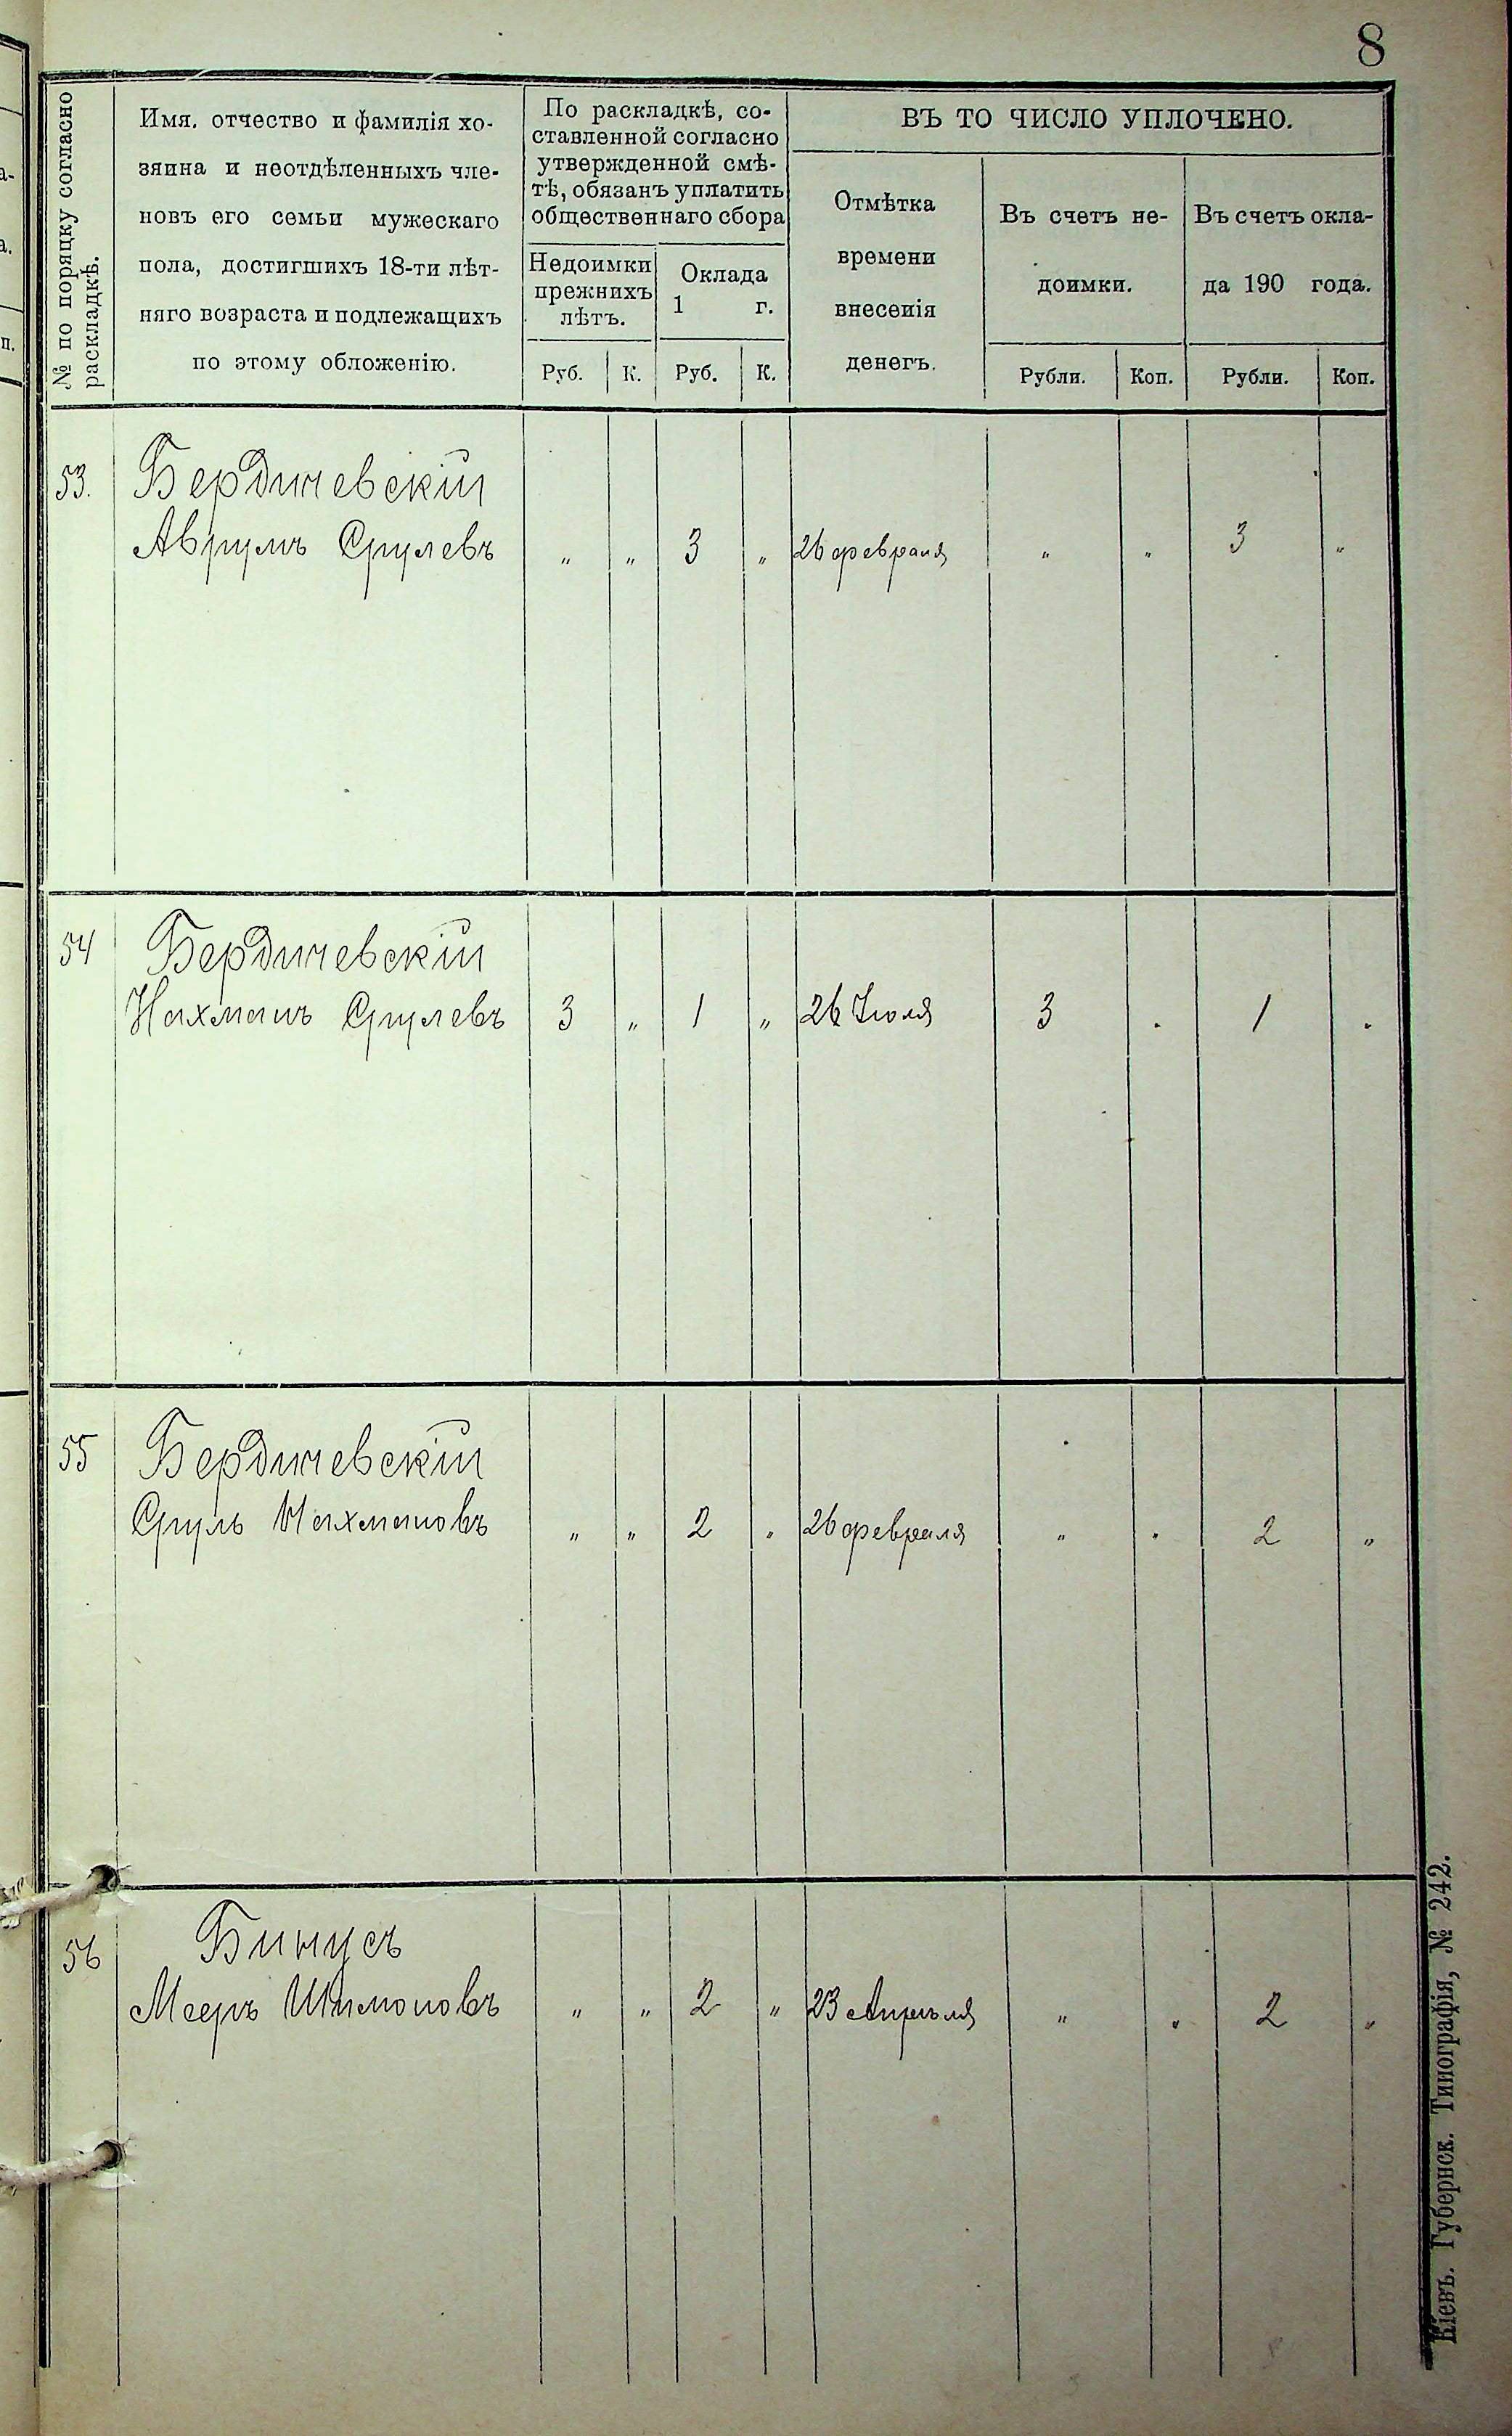 8
№ по порядку согласно
раскладкѣ.
Имя, отчество и фамилія хо-
зяина и неотдѣленныхъ чле-
новъ его семьи мужескаго
пола, достигшихъ 18-ти лѣт-
няго возраста и подлежащихъ
по этому обложенію.
По раскладкѣ, со-
ставленной согласно
утвержденной смѣ-
тѣ, обязанъ уплатить
общественнаго сбора
Недоимки
прежнихъ
лѣтъ.
Оклада
1 г.
Руб. К. Руб. К.
ВЪ ТО ЧИСЛО УПЛОЧЕНО.
Отмѣтка
времени
внесенія
денегъ.
Въ счетъ не-
доимки.
Въ счетъ окла-
да 190 года.
Рубли. Коп. Рубли. Коп.
53. Бердичевскій
Аврумъ Срулевъ " " 3 " 26 февраля " " 3 "
54 Бердичевскій
Нахманъ Срулевъ 3 " 1 " 26 Іюля 3 " 1 "
55 Бердичевскій
Сруль Нахмановъ " " 2 " 26 февраля " " 2 "
56 Бинусъ
Мееръ Шимоновъ " " 2 " 23 Апрѣля " " 2 "
Кіевъ. Губернск. Типографія, № 242.